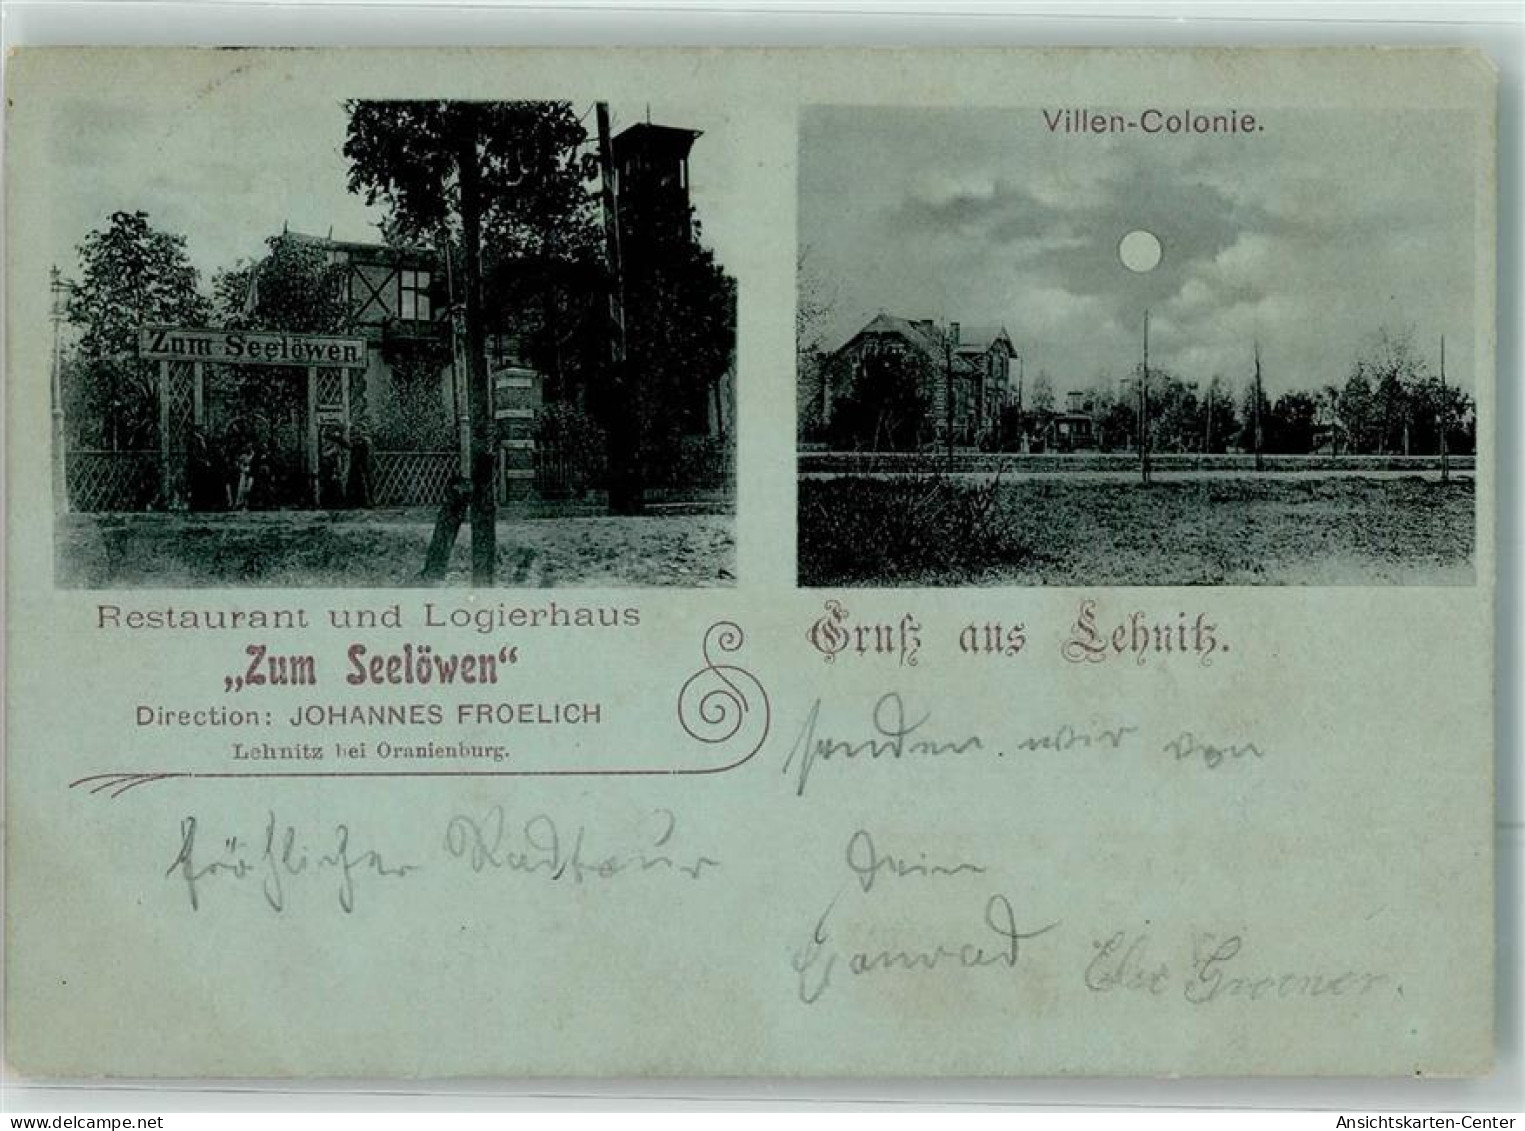 Zum Seelöwen.
Villen-Colonie.
Restaurant und Logierhaus
„Zum Seelöwen“
Direction: JOHANNES FROELICH
Lehnitz bei Oranienburg.
Gruß aus Lehnitz.
senden wir von
fröhlicher Radtour
Dein
Conrad
delcampe.net
Ansichtskarten-Center